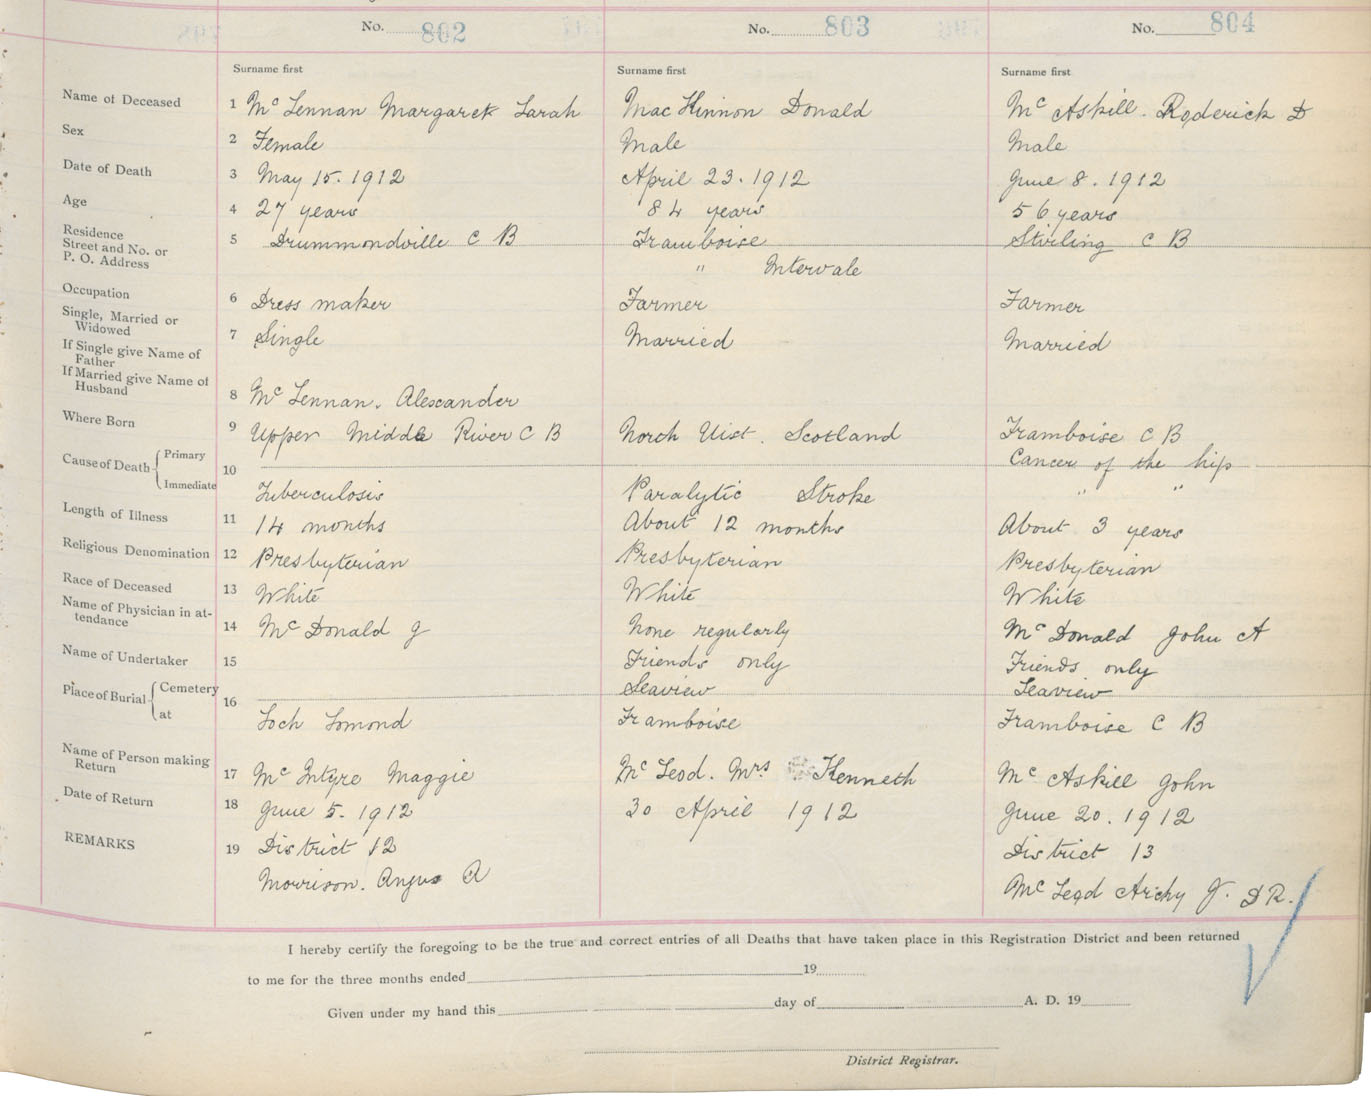 No. 802 No. 803 No. 804
Surname first Surname first Surname first
Name of Deceased 1 Mc Lennan Margaret Sarah Mac Kinnon Donald Mc Askill. Roderick D
Sex 2 Female Male Male
Date of Death 3 May 15. 1912 April 23. 1912 June 8. 1912
Age 4 27 years 84 years 56 years
Residence
Street and No. or
P. O. Address 5 Drummondville C B Framboise Stirling C B
" Intervale
Occupation 6 Dress maker Farmer Farmer
Single, Married or
Widowed 7 Single Married Married
If Single give Name of
Father
If Married give Name of
Husband 8 Mc Lennan. Alexander
Where Born 9 Upper Middle River C B North Uist. Scotland Framboise C B
Cause of Death Primary 10 Cancer of the hip
Immediate Tuberculosis Paralytic Stroke " "
Length of Illness 11 14 months About 12 months About 3 years
Religious Denomination 12 Presbyterian Presbyterian Presbyterian
Race of Deceased 13 White White White
Name of Physician in at-
tendance 14 Mc Donald J None regularly Mc Donald John A
Name of Undertaker 15 Friends only Friends only
Place of Burial Cemetery 16 Seaview Seaview
at Loch Lomond Framboise Framboise C B
Name of Person making
Return 17 Mc Intyre Maggie Mc Leod. Mrs Kenneth Mc Askill John
Date of Return 18 June 5. 1912 30 April 1912 June 20. 1912
REMARKS 19 District 12 District 13
Morrison. Angus A Mc Leod Archy J. D R.
I hereby certify the foregoing to be the true and correct entries of all Deaths that have taken place in this Registration District and been returned
to me for the three months ended 19
Given under my hand this day of A. D. 19
District Registrar.